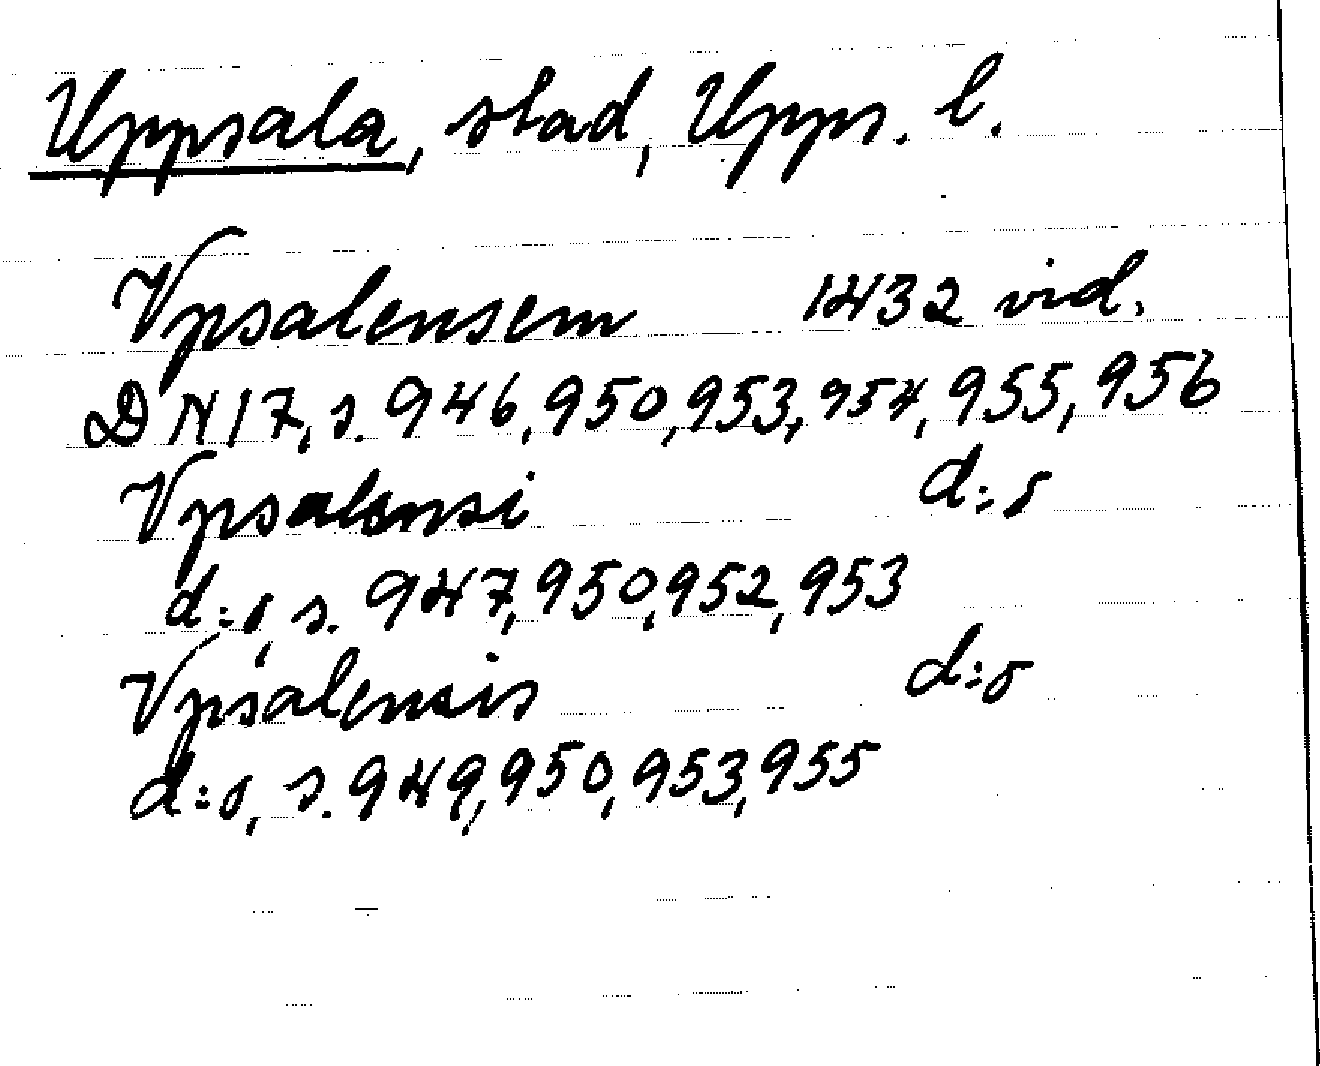 Uppsala, stad, Upps. l.
Vpsalensem 1432 vid.
DN 17, s. 946, 950, 953, 954, 955, 956
Vpsalensi d:o
d:o, s. 947, 950, 952, 953
Vpsalensis d:o
d:o, s. 949, 950, 953, 955